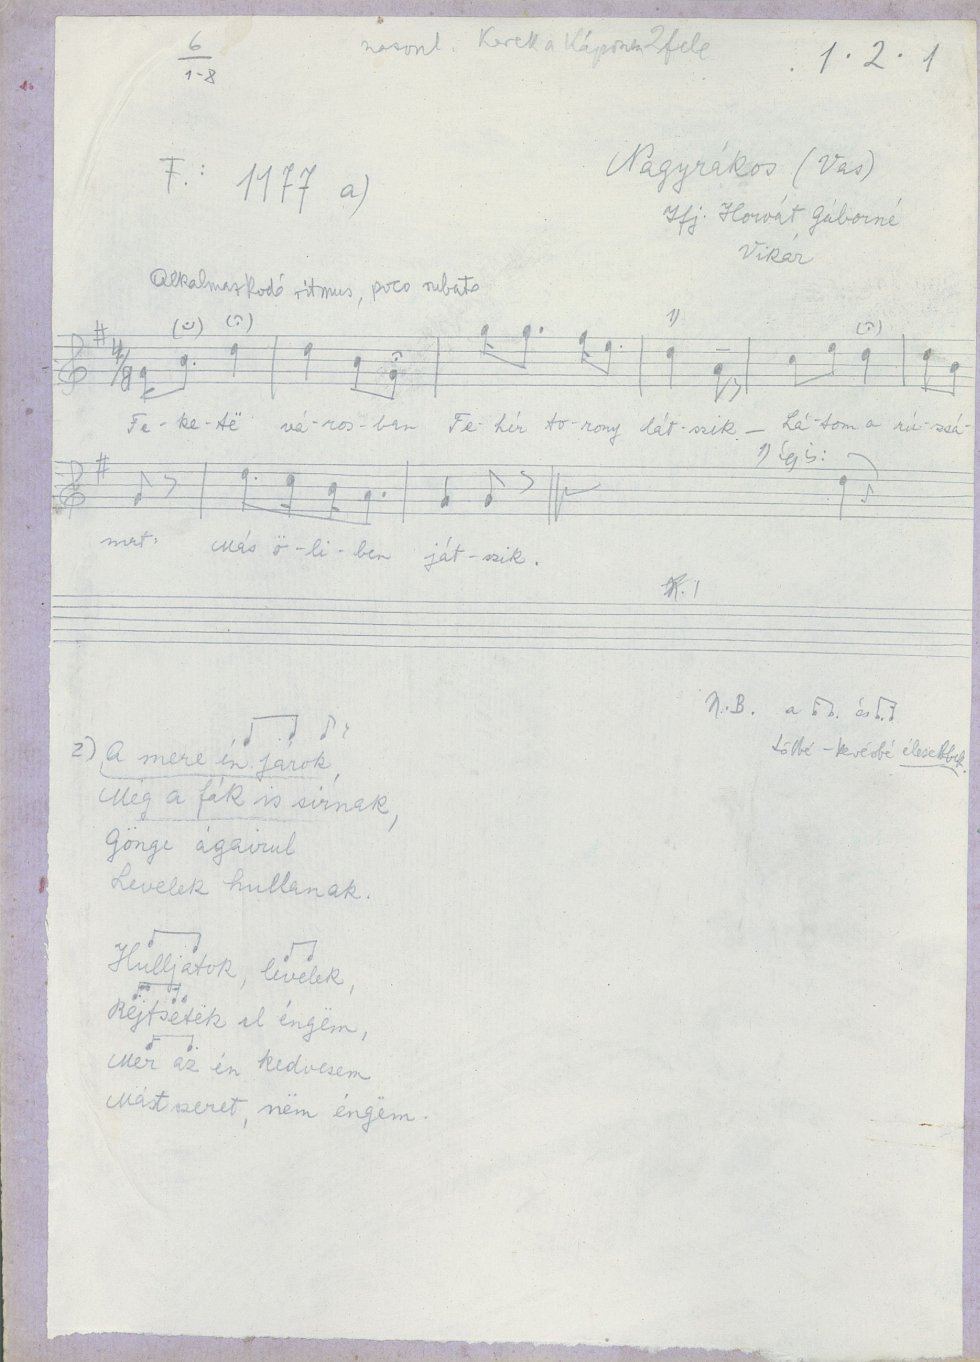 6
1-8
hasonl. Kerek a 2fele
1 . 2 . 1
F.: 1177 a)
Nagyrákos (Vas)
Ifj. Horvát Gáborné
Vikár
Alkalmazkodó ritmus, poco rubato
4/8
1)
Fe-ke-të vá-ros-ban Fe-hér to-rony lát-szik – Lá-tom a ru-zsá-
1) így is:
mat: Más ö-li-ben ját-szik.
K. !
N.B. a és
többé-kevésbé élesebbek.
2) A mere én járok,
Még a fák is sírnak,
Gönge ágairul
Levelek hullanak.
Hulljatok, levelek,
Rëjtsetëk el éngëm,
Mer az én kedvesem
Mást szeret, nëm éngëm.